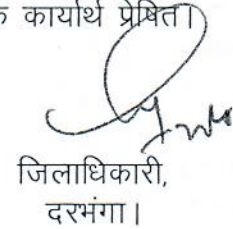 क कार्यार्थ प्रेषित।
जिलाधिकारी,
दरभंगा।